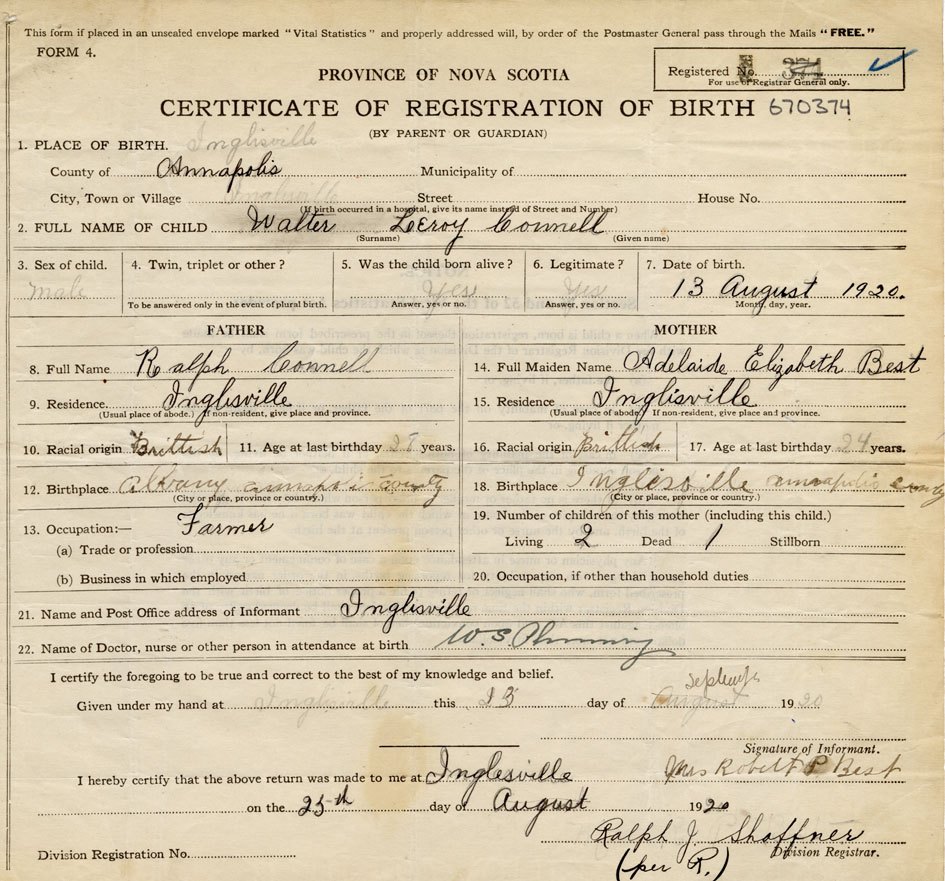 This form if placed in an unsealed envelope marked "Vital Statistics" and properly addressed will, by order of the Postmaster General pass through the Mails "FREE."
FORM 4.
Registered No. 374
For use of Registrar General only.
PROVINCE OF NOVA SCOTIA
CERTIFICATE OF REGISTRATION OF BIRTH 670374
(BY PARENT OR GUARDIAN)
1. PLACE OF BIRTH. Inglisville
County of Annapolis Municipality of
City, Town or Village Inglisville Street House No.
(If birth occurred in a hospital, give its name instead of Street and Number)
2. FULL NAME OF CHILD Walter Leroy Connell
(Surname) (Given name)
3. Sex of child. 4. Twin, triplet or other? 5. Was the child born alive? 6. Legitimate? 7. Date of birth.
male Yes Yes 13 August 1920.
To be answered only in the event of plural birth. Answer, yes or no. Answer, yes or no. Month, day, year.
FATHER MOTHER
8. Full Name Ralph Connell 14. Full Maiden Name Adelaide Elizabeth Best
9. Residence. Inglisville 15. Residence Inglisville
(Usual place of abode.) If non-resident, give place and province. (Usual place of abode) If non-resident, give place and province.
10. Racial origin Brittish 11. Age at last birthday years. 16. Racial origin Brittish 17. Age at last birthday 24 years.
12. Birthplace Albany annapolis county 18. Birthplace Inglesville annapolis county
(City or place, province or country.) (City or place, province or country.)
13. Occupation:— Farmer 19. Number of children of this mother (including this child.)
(a) Trade or profession Living 2 Dead 1 Stillborn
(b) Business in which employed 20. Occupation, if other than household duties
21. Name and Post Office address of Informant Inglisville
22. Name of Doctor, nurse or other person in attendance at birth W. S. Phinney
I certify the foregoing to be true and correct to the best of my knowledge and belief.
September
Given under my hand at Inglisville this 23 day of August 1920
Signature of Informant.
I hereby certify that the above return was made to me at Inglesville Mrs Robert P Best
on the 25th day of August 1920
Ralph J. Shaffner
Division Registration No. Division Registrar.
(per R.)